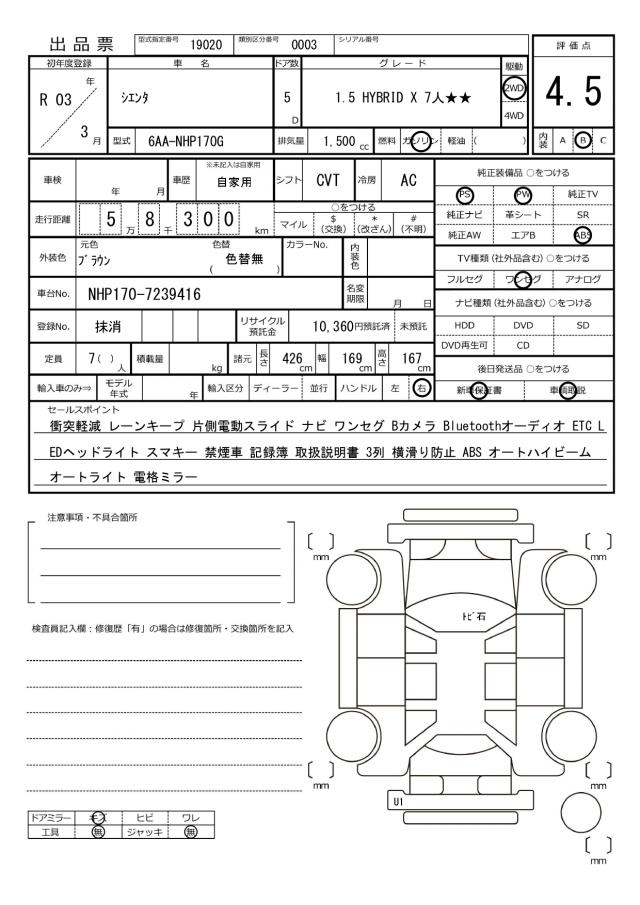 出品票 型式指定番号 19020 類別区分番号 0003 シリアル番号
初年度登録 車名 ドア数 グレード 駆動 評価点
R 03 年 3 月 シエンタ 5 D 1.5 HYBRID X 7人★★ 2WD 4WD 4.5
型式 6AA-NHP170G 排気量 1,500 cc 燃料 ガソリン 軽油 ( ) 内装 A B C
車検 年 月 車歴 ※未記入は自家用 自家用 シフト CVT 冷房 AC
走行距離 5 万 8 千 3 0 0 km ○をつける マイル $ (交換) * (改ざん) # (不明)
外装色 元色 ブラウン 色替 ( 色替無 ) カラーNo. 内装色
車台No. NHP170-7239416 名変期限 月 日
登録No. 抹消 リサイクル預託金 10,360円預託済 未預託
定員 7( ) 人 積載量 kg 諸元 長さ 426 cm 幅 169 cm 高さ 167 cm
輸入車のみ⇒ モデル年式 年 輸入区分 ディーラー 並行 ハンドル 左 右
純正装備品 ○をつける
PS PW 純正TV
純正ナビ 革シート SR
純正AW エアB ABS
TV種類(社外品含む)○をつける
フルセグ ワンセグ アナログ
ナビ種類(社外品含む)○をつける
HDD DVD SD
DVD再生可 CD
後日発送品 ○をつける
新車保証書 車輌取説
セールスポイント
衝突軽減 レーンキープ 片側電動スライド ナビ ワンセグ Bカメラ Bluetoothオーディオ ETC L
EDヘッドライト スマキー 禁煙車 記録簿 取扱説明書 3列 横滑り防止 ABS オートハイビーム
オートライト 電格ミラー
注意事項・不具合箇所
検査員記入欄:修復歴「有」の場合は修復箇所・交換箇所を記入
ドアミラー キズ ヒビ ワレ
工具 無 ジャッキ 無
〔 〕 mm
〔 〕 mm
トビ石
〔 〕 mm
〔 〕 mm
U1
〔 〕 mm